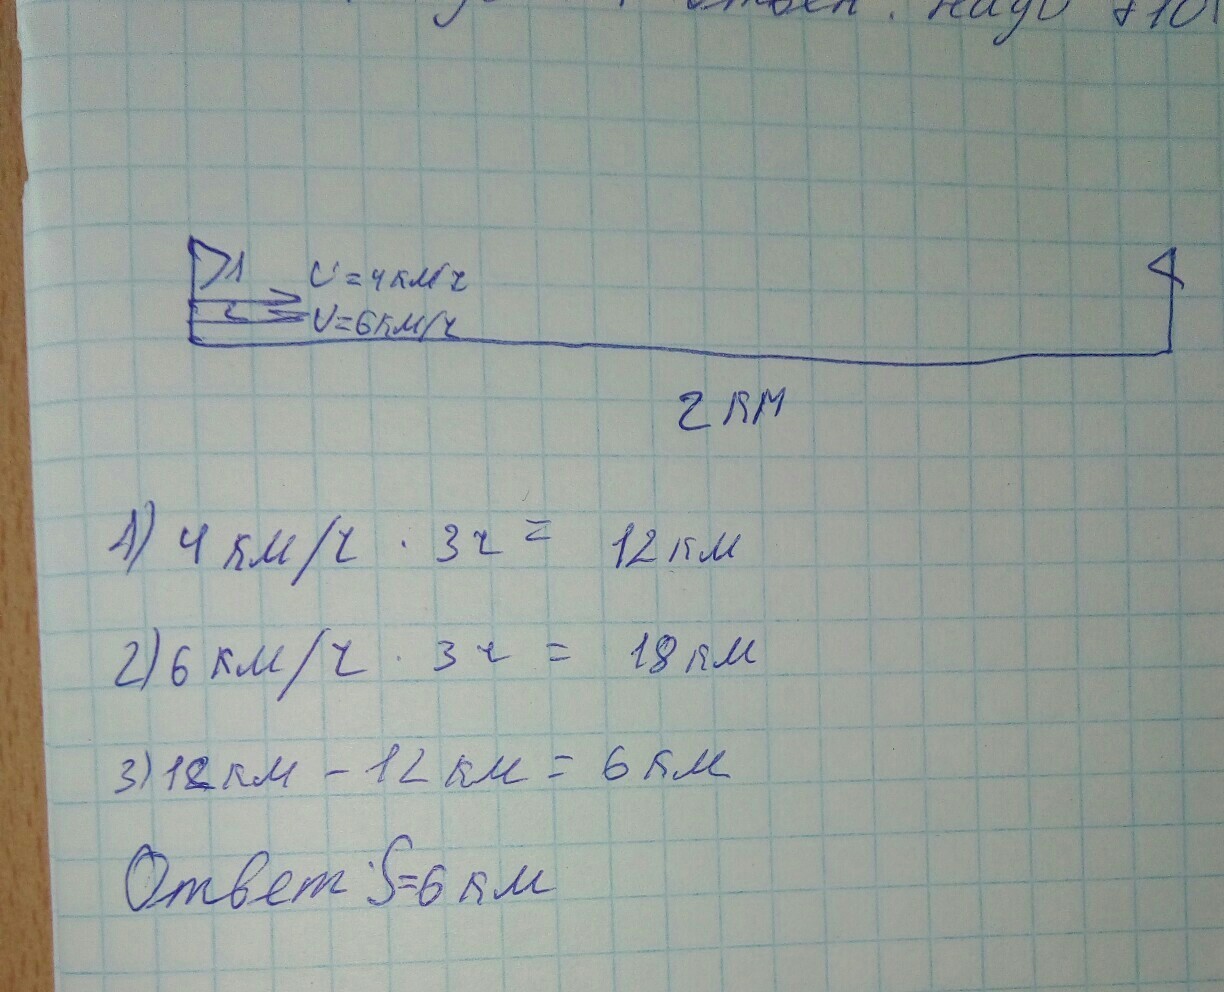 надо
1 U=4км/ч
2 U=6км/ч
2 км
1) 4 км/ч · 3ч = 12 км
2) 6 км/ч · 3ч = 18 км
3) 18 км - 12 км = 6 км
Ответ: S=6 км